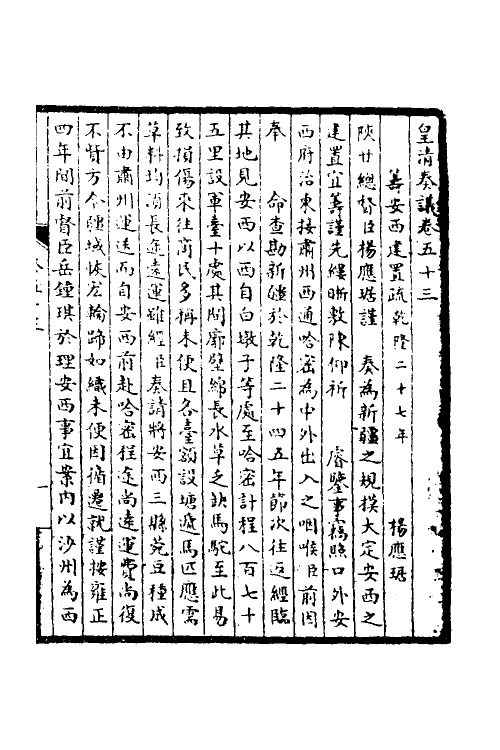 皇清奏議卷五十三
善安西建置疏乾隆二十七年 楊應琚
陝甘總督臣楊應琚謹 奏為新疆之規模大定安西之
建置宜善謹先縷晰敷陳仰祈 睿鑒事竊照口外安
西府治東接肅州西通哈密為中外出入之咽喉臣前因
奉 命查勘新疆於乾隆二十四五年節次往返經臨
其地見安西以西自白墩子等處至哈密計程八百七十
五里設軍臺十處其間廓壁綿長水草乏缺馬駝至此易
致損傷來往商民多稱未便且各臺額設塘遞馬匹應需
草料均須長途遠運雖經臣奏請將安西三縣菀豆種成
不由肅州運送而自安西前赴哈密程途尚遠運費尚復
不貲方今疆域恢宏輪蹄如織未便因循遷就謹按雍正
四年間前督臣岳鍾琪於理安西事宜案內以沙州為西